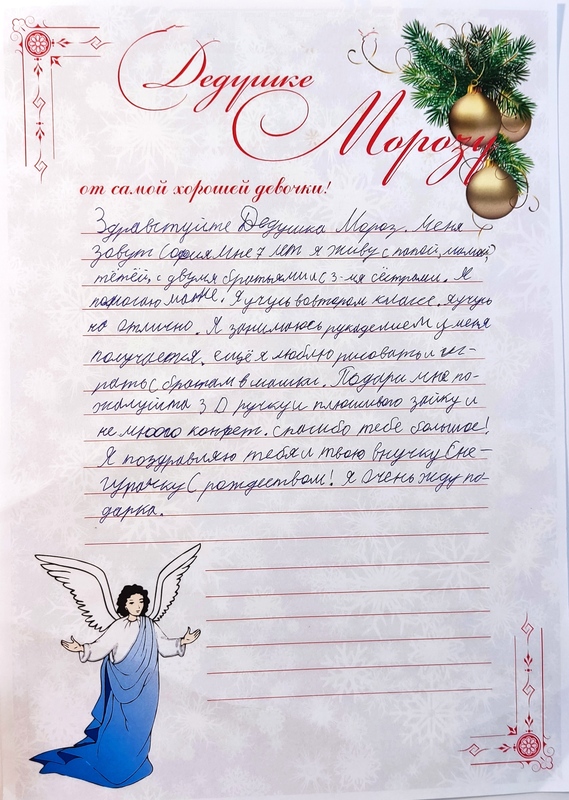 Дедушке
Морозу
от самой хорошей девочки!
Здравствуйте Дедушка Мороз. Меня
Зовут София мне 7 лет я живу с папой, мамой,
тётей, с двумя братьями и с 3-мя сёстрами. Я
помогаю маме. Я учусь во втором классе. я учусь
на отлично. Я занимаюсь рукоделием у меня
получается. ещё я люблю рисовать и иг-
рать с братом в машки. Подари мне по-
жалуйста 3 D ручку и плюшивого зайку и
не много конфет. спасибо тебе большое!
Я поздравляю тебя и твою внучку Сне-
гурачку С рождеством! Я Очень жду по-
дарка.